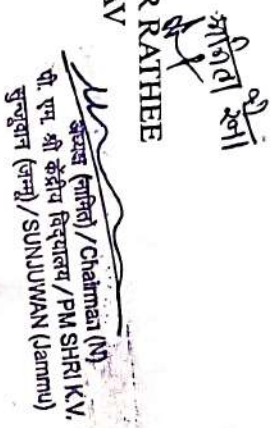 R RATHEE
AV
अध्यक्ष (नामित) / Chairman (N)
पी. एम. श्री केंद्रीय विद्यालय / PM SHRI K.V.
सुन्जुवान (जम्मू) / SUNJUWAN (Jammu)